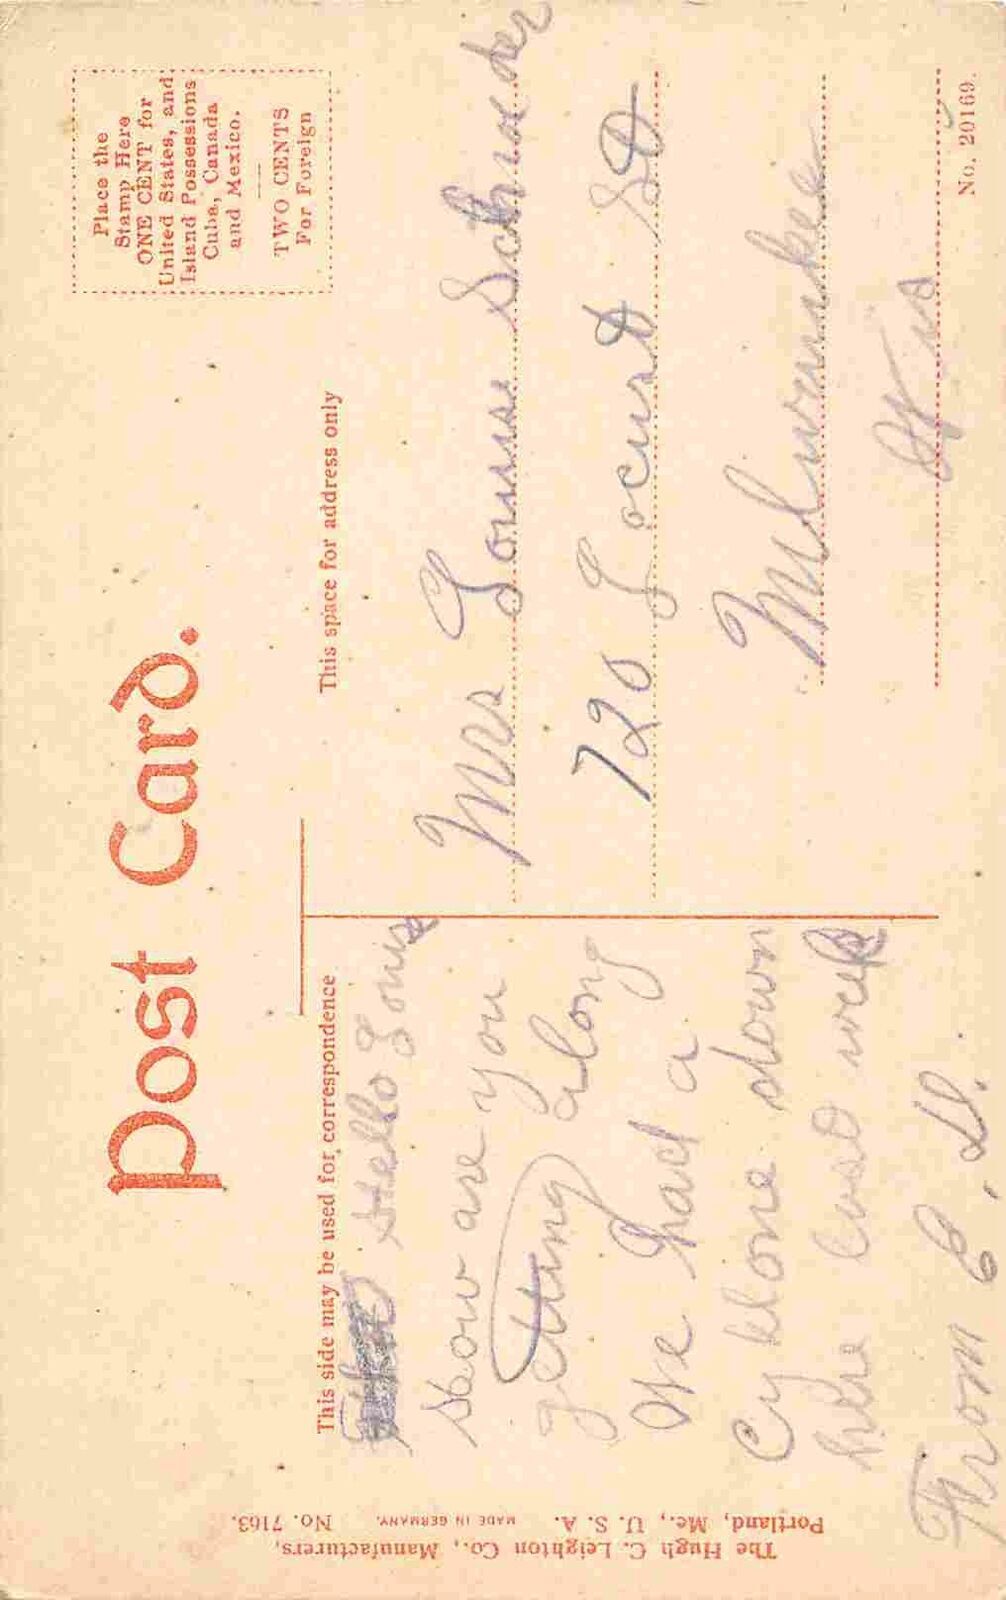 Post Card.
Place the
Stamp Here
ONE CENT for
United States, and
Island Possessions
Cuba, Canada
and Mexico.
TWO CENTS
For Foreign
This side may be used for correspondence
This space for address only
Hello Louis
How are you
getting along
We had a
Cyklone down
here last week
From C. D.
Mrs Louise Schroeder
720 Locust St
Milwaukee
Wis
No. 20169.
The Hugh C. Leighton Co., Manufacturers,
Portland, Me., U. S. A. MADE IN GERMANY. No. 7163.